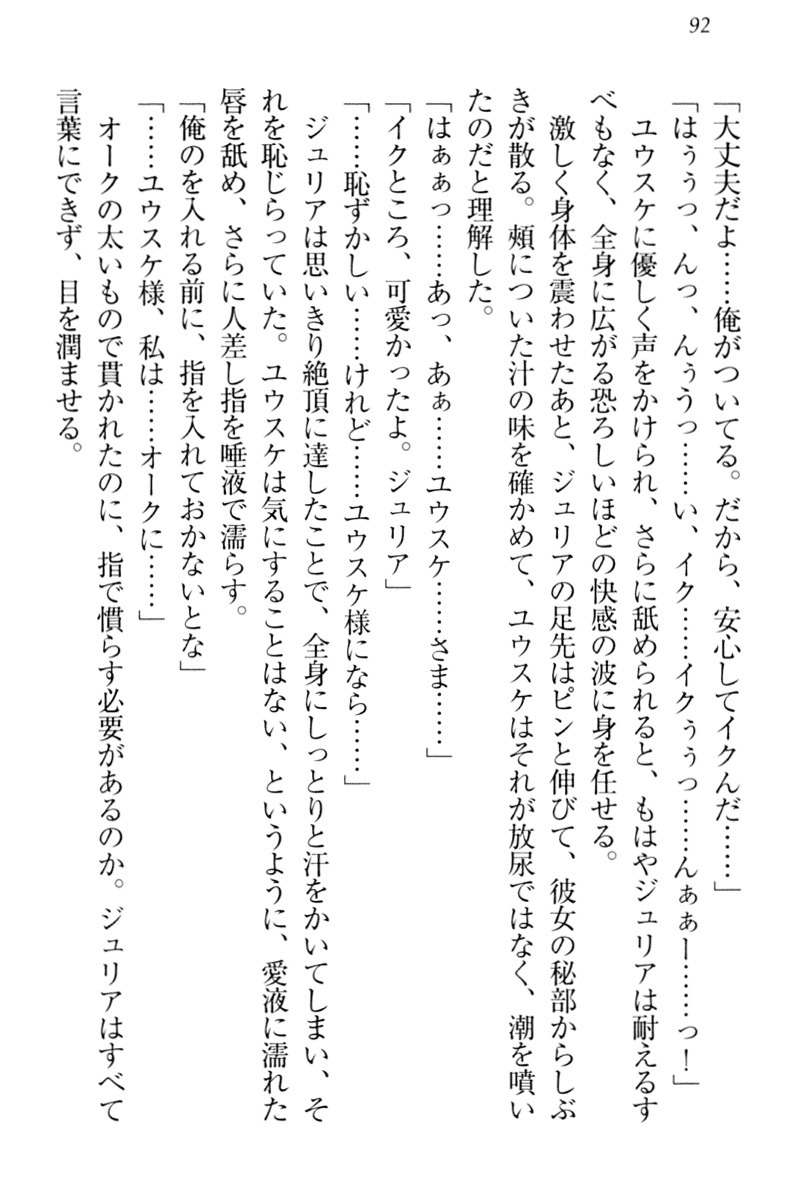 92
「大丈夫だよ……俺がついてる。だから、安心してイクんだ……」
「はぅぅっ、んっ、んぅうっ……い、イク……イクぅぅっ……んぁぁー……っ！」
　ユウスケに優しく声をかけられ、さらに舐められると、もはやジュリアは耐えるす
べもなく、全身に広がる恐ろしいほどの快感の波に身を任せる。
　激しく身体を震わせたあと、ジュリアの足先はピンと伸びて、彼女の秘部からしぶ
きが散る。頬についた汁の味を確かめて、ユウスケはそれが放尿ではなく、潮を噴い
たのだと理解した。
「はぁぁっ……あっ、あぁ……ユウスケ……さま……」
「イクところ、可愛かったよ。ジュリア」
「……恥ずかしい……けれど……ユウスケ様になら……」
　ジュリアは思いきり絶頂に達したことで、全身にしっとりと汗をかいてしまい、そ
れを恥じらっていた。ユウスケは気にすることはない、というように、愛液に濡れた
唇を舐め、さらに人差し指を唾液で濡らす。
「俺のを入れる前に、指を入れておかないとな」
「……ユウスケ様、私は……オークに……」
　オークの太いもので貫かれたのに、指で慣らす必要があるのか。ジュリアはすべて
言葉にできず、目を潤ませる。